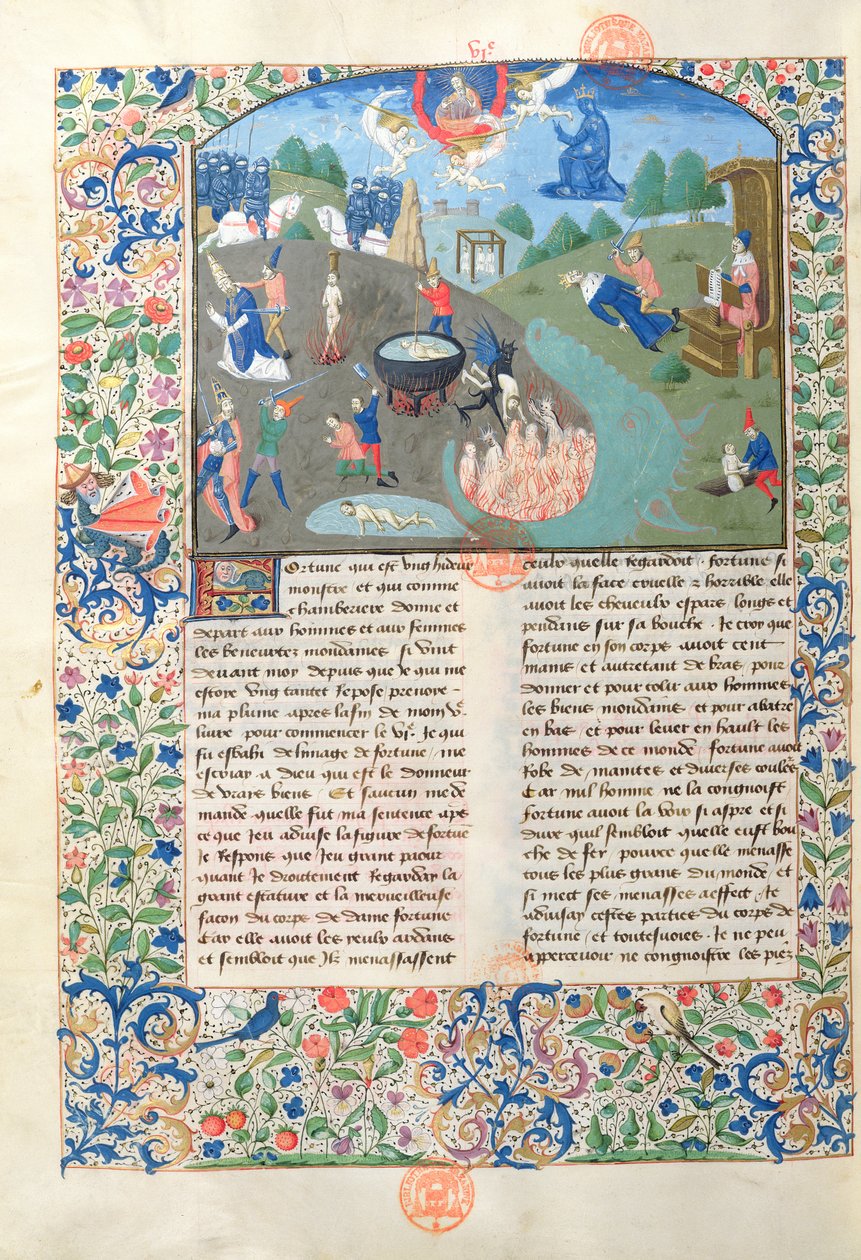 vi.e
Fortune qui est vng hideux
monstre / et qui comme
chamberiere donne et
depart aux hommes et aux femmes
les beneurtez mondaines si vint
deuant moy depuis que Je qui me
estoye vng tantet Repose / prenoye
ma plume apres la fin de mon v.e
liure pour commencer le vi.e Je qui
fu esbahi de limage de fortune / me
escriay a dieu qui est le donneur
de vrais biens / Et saucun me de
mande quelle fut ma sentence apres
ce que Jeu aduise la figure de fortune
Je Respons que Jeu grant paour
quant Je droitement Regarday la
grant estature et la merueilleuse
facon du corps de dame fortune
Car elle auoit les yeulx ardans
et sembloit que Ilz menassassent
ceulx quelle Regardoit / fortune si
auoit la face cruelle & horrible elle
auoit les cheueulx espars longs et
pendans sur sa bouche / Je croy que
fortune en son corps auoit cent
mains / et autretant de bras / pour
donner et pour tolir aux hommes
les biens mondains / et pour abatre
en bas / et pour leuer en hault les
hommes de ce monde / fortune auoit
Robe de maintes et diuerses coulers
Car nul homme ne la congnoist
fortune auoit la voix si aspre et si
dure quil sembloit quelle eust bou
che de fer / pource quelle menasse
tous les plus grans du monde / et
si mect ses menasses a effect / Je
aduisay cestes parties du corps de
fortune / et toutesuoies Je ne peu
apperceuoir ne congnoistre les piez